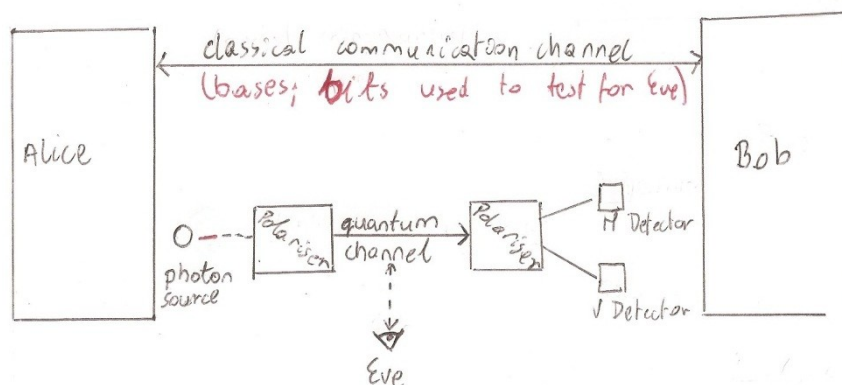 classical communication channel
(bases; bits used to test for Eve)
Alice
Bob
Polariser
quantum
channel
Polariser
H Detector
photon
source
V Detector
Eve